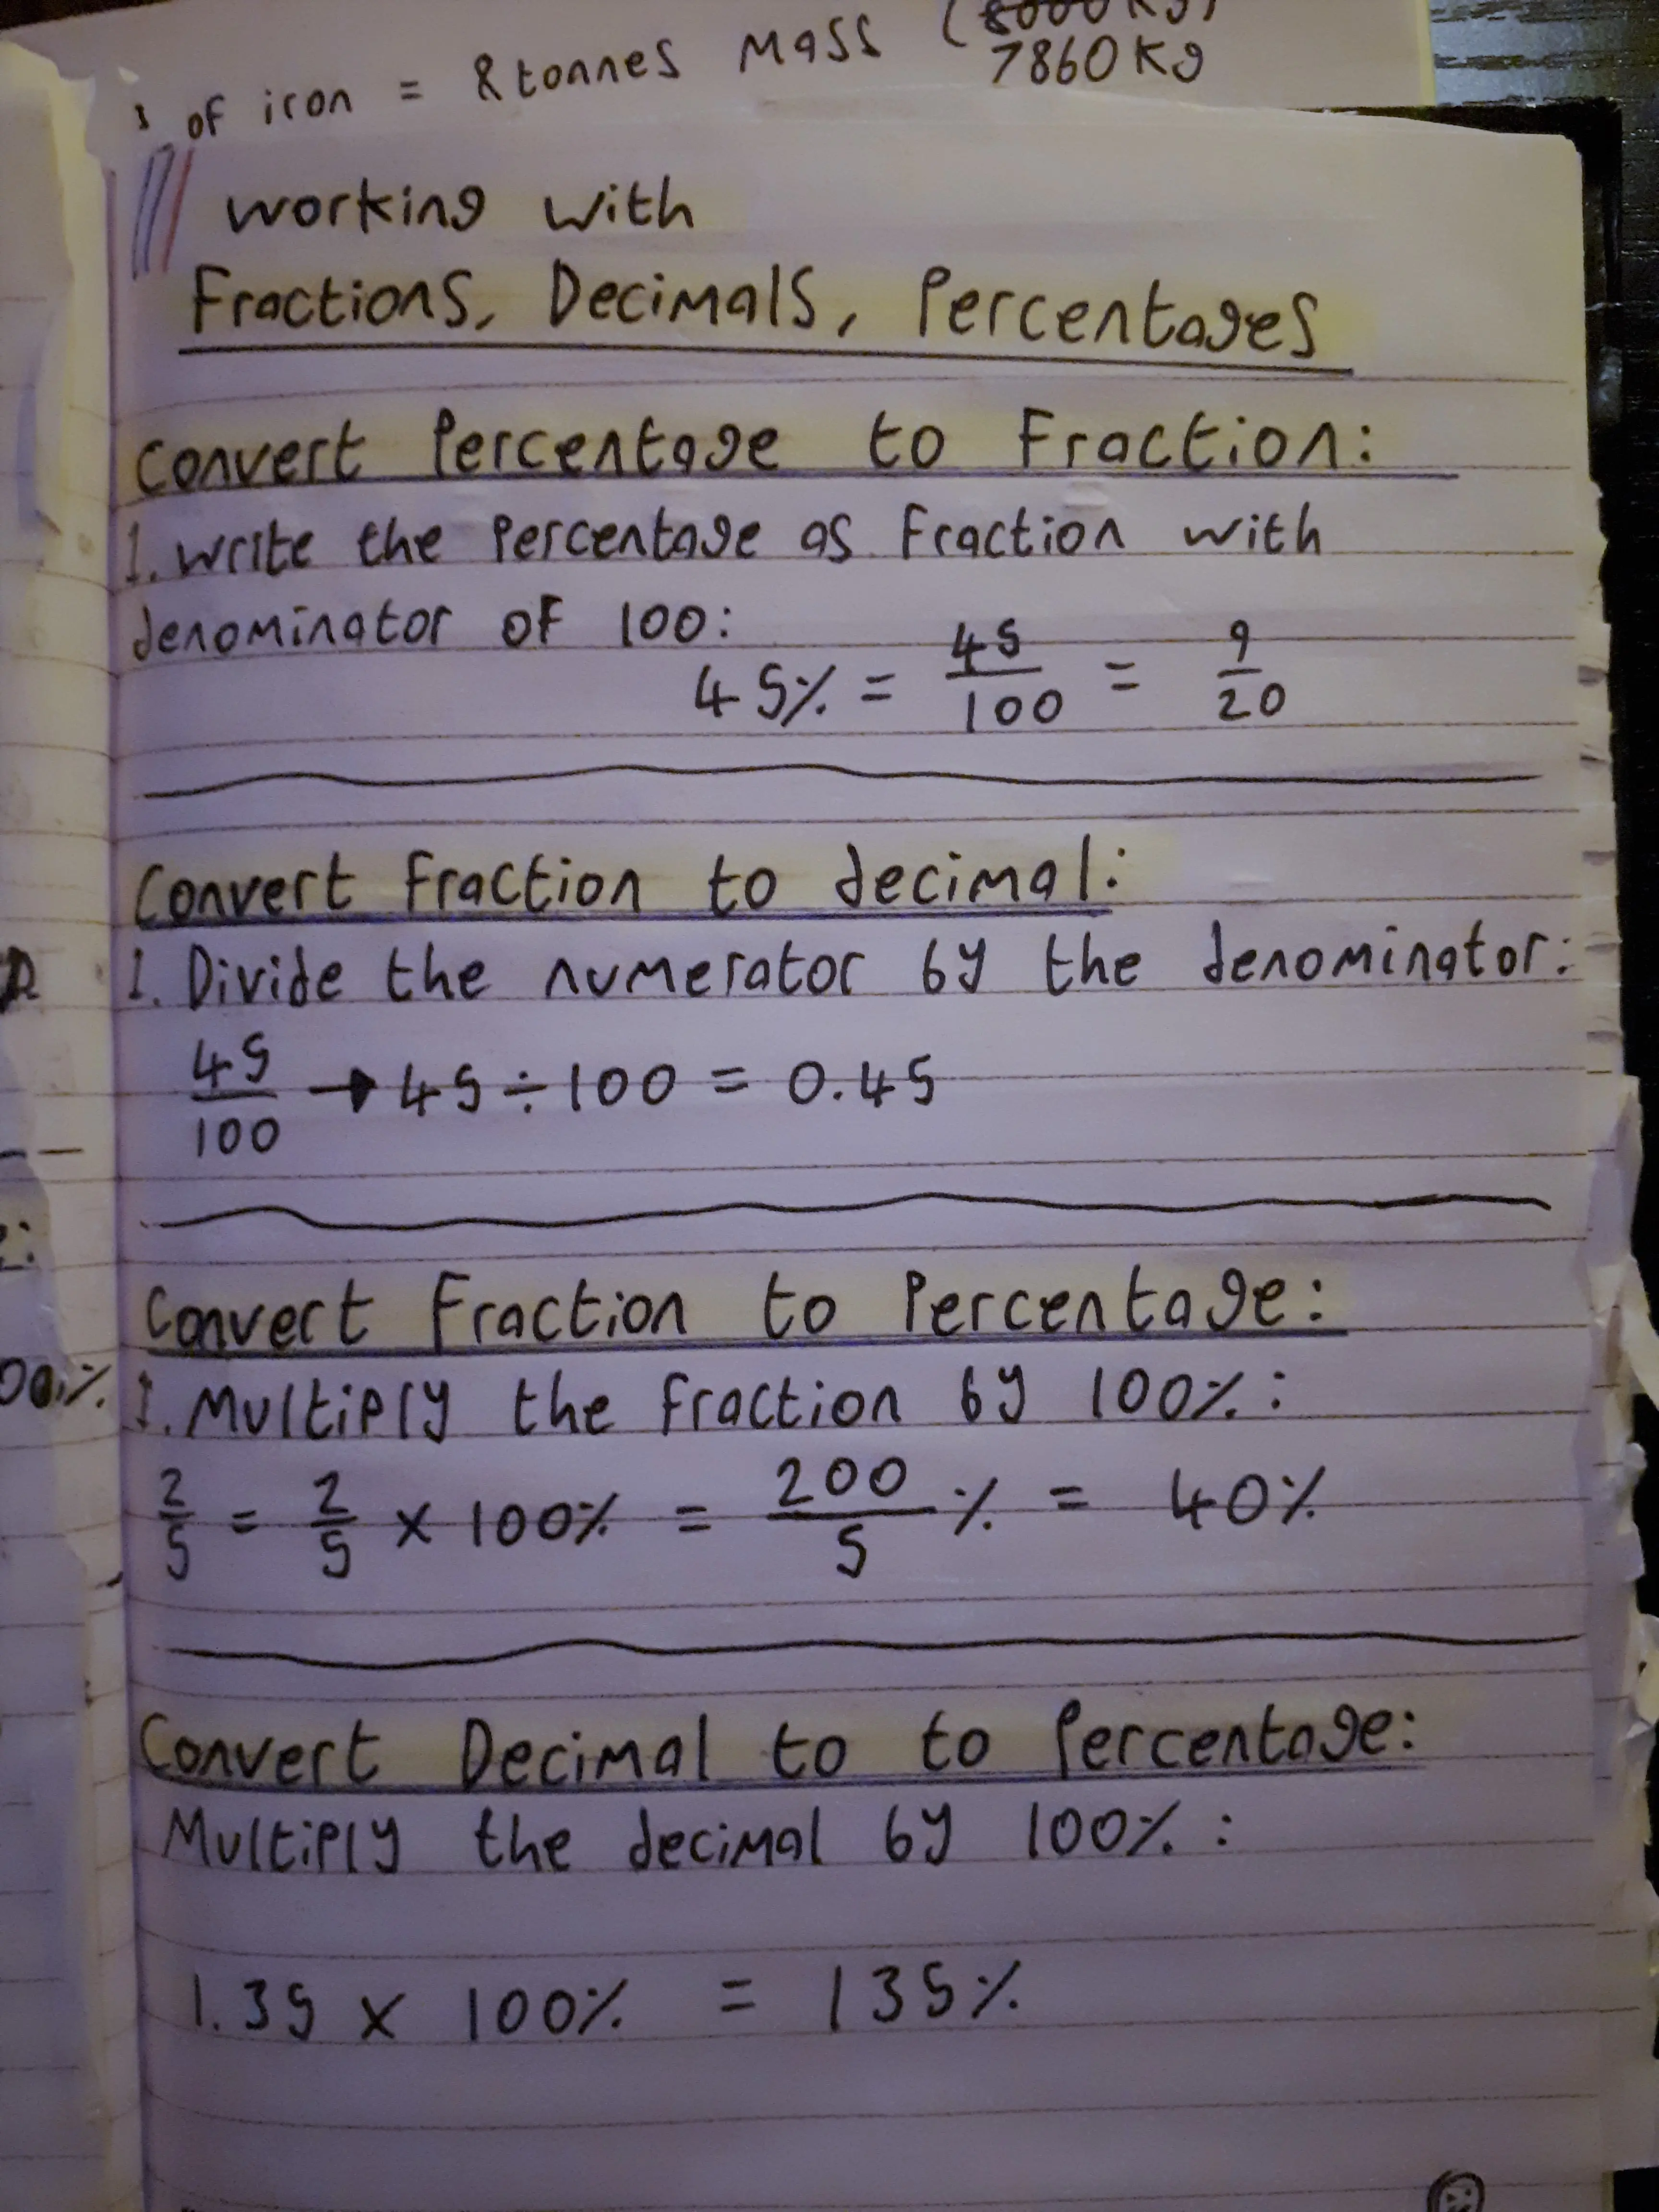 of iron = 8 tonnes Mass (8000 Kg)
7860 Kg
working with
Fractions, Decimals, Percentages
Convert Percentage to Fraction:
1. Write the Percentage as Fraction with
denominator of 100:
45% = 45/100 = 9/20
Convert Fraction to decimal:
1. Divide the numerator by the denominator:
45/100 → 45 ÷ 100 = 0.45
Convert Fraction to Percentage:
1. Multiply the fraction by 100% :
2/5 = 2/5 × 100% = 200/5 % = 40%
Convert Decimal to to Percentage:
Multiply the decimal by 100% :
1.35 × 100% = 135%